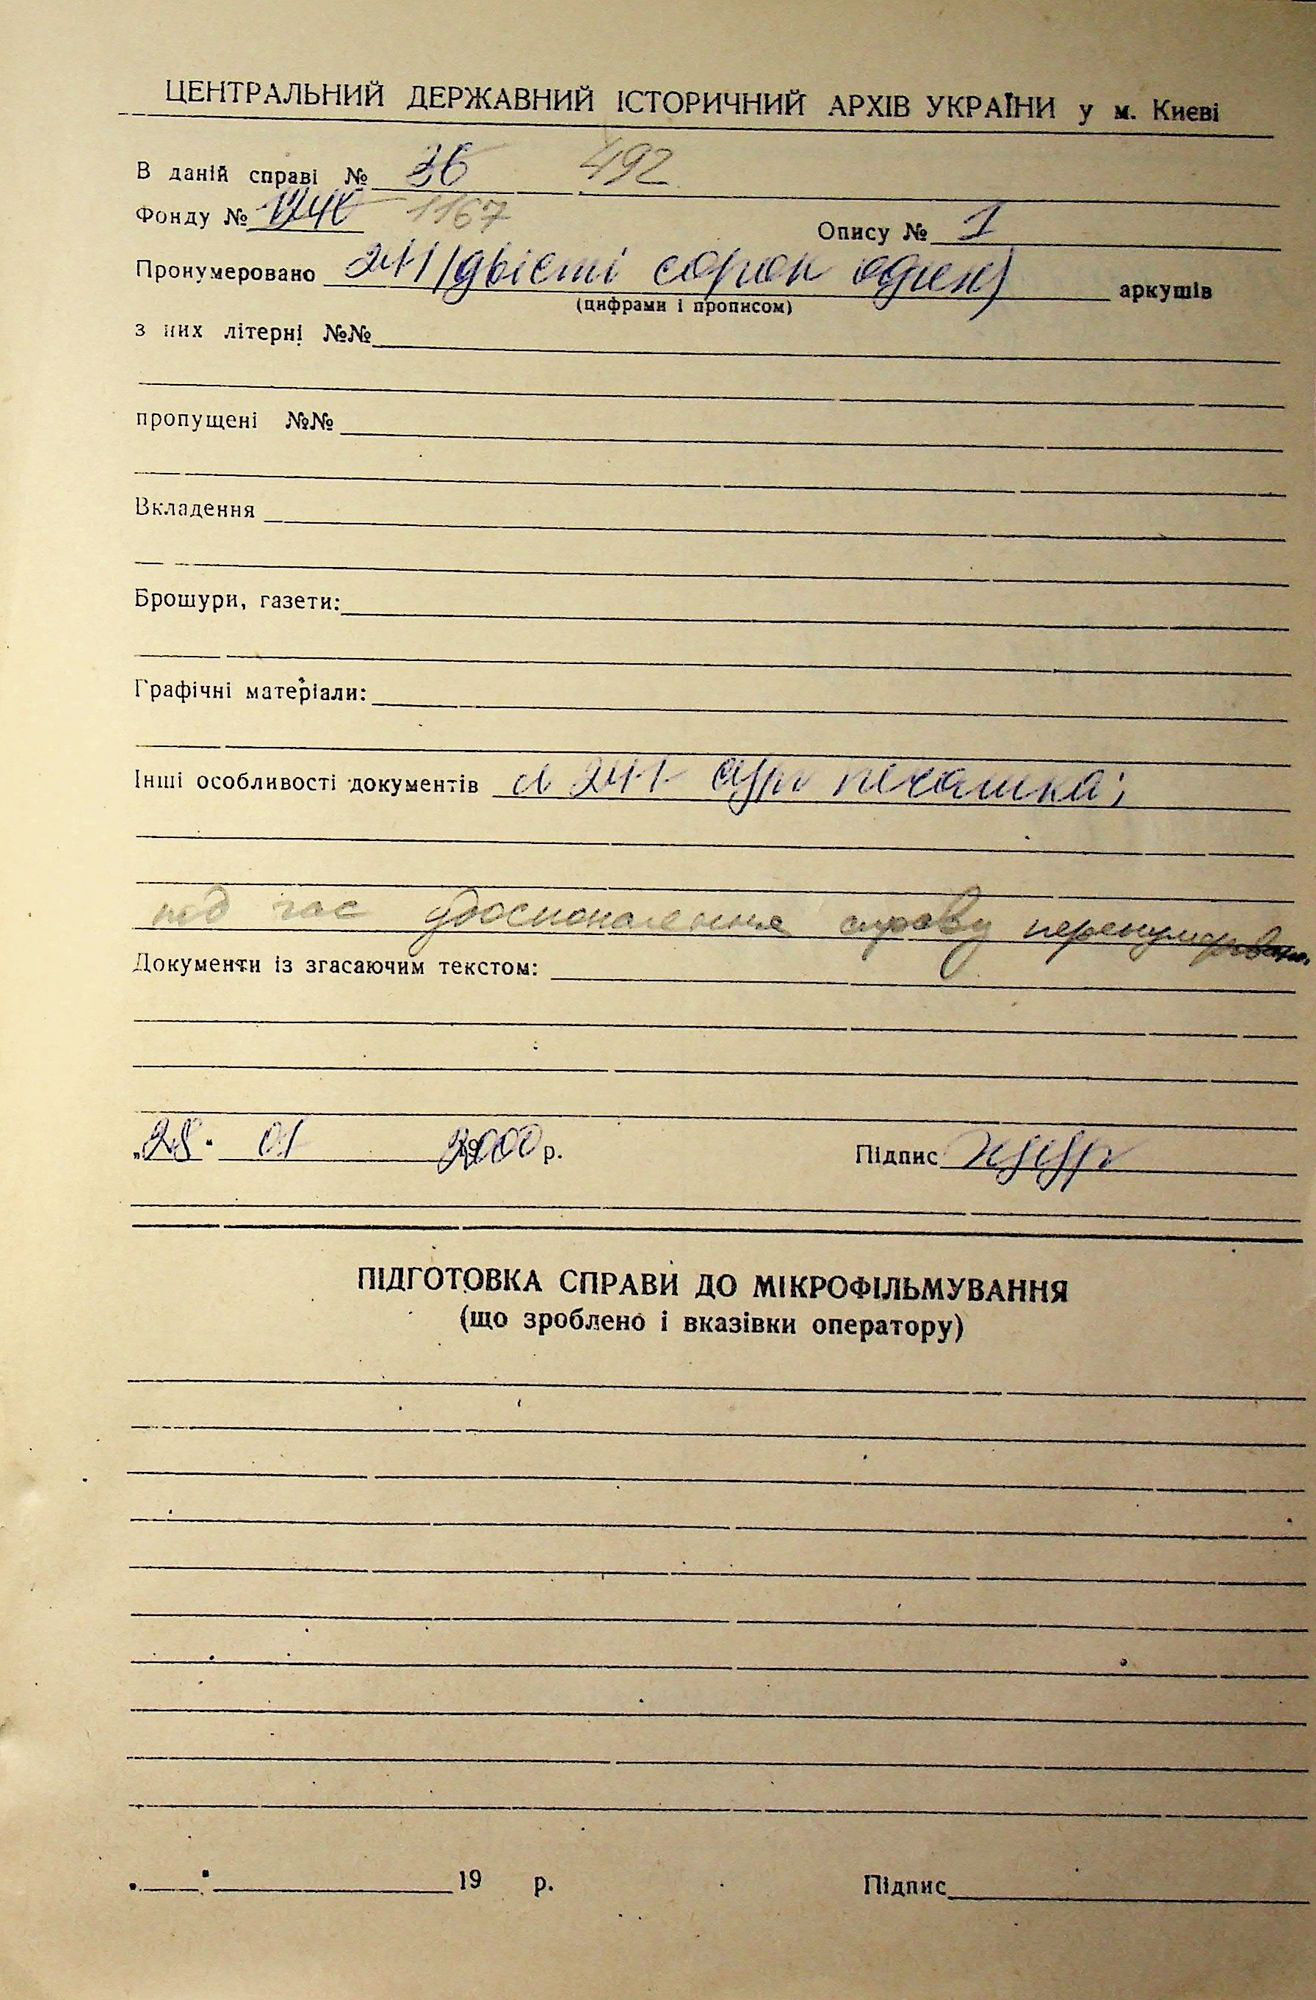 ЦЕНТРАЛЬНИЙ ДЕРЖАВНИЙ ІСТОРИЧНИЙ АРХІВ УКРАЇНИ у м. Києві
В даній справі № 36 492
Фонду № 1240 1167 Опису № 1
Пронумеровано 241 (двісті сорок один) аркушів
(цифрами і прописом)
з них літерні №№
пропущені №№
Вкладення
Брошури, газети:
Графічні матеріали:
Інші особливості документів 241 печатка;
під час удосконалення справу
Документи із згасаючим текстом:
„28“ 01 2000 р. Підпис
ПІДГОТОВКА СПРАВИ ДО МІКРОФІЛЬМУВАННЯ
(що зроблено і вказівки оператору)
19 р. Підпис